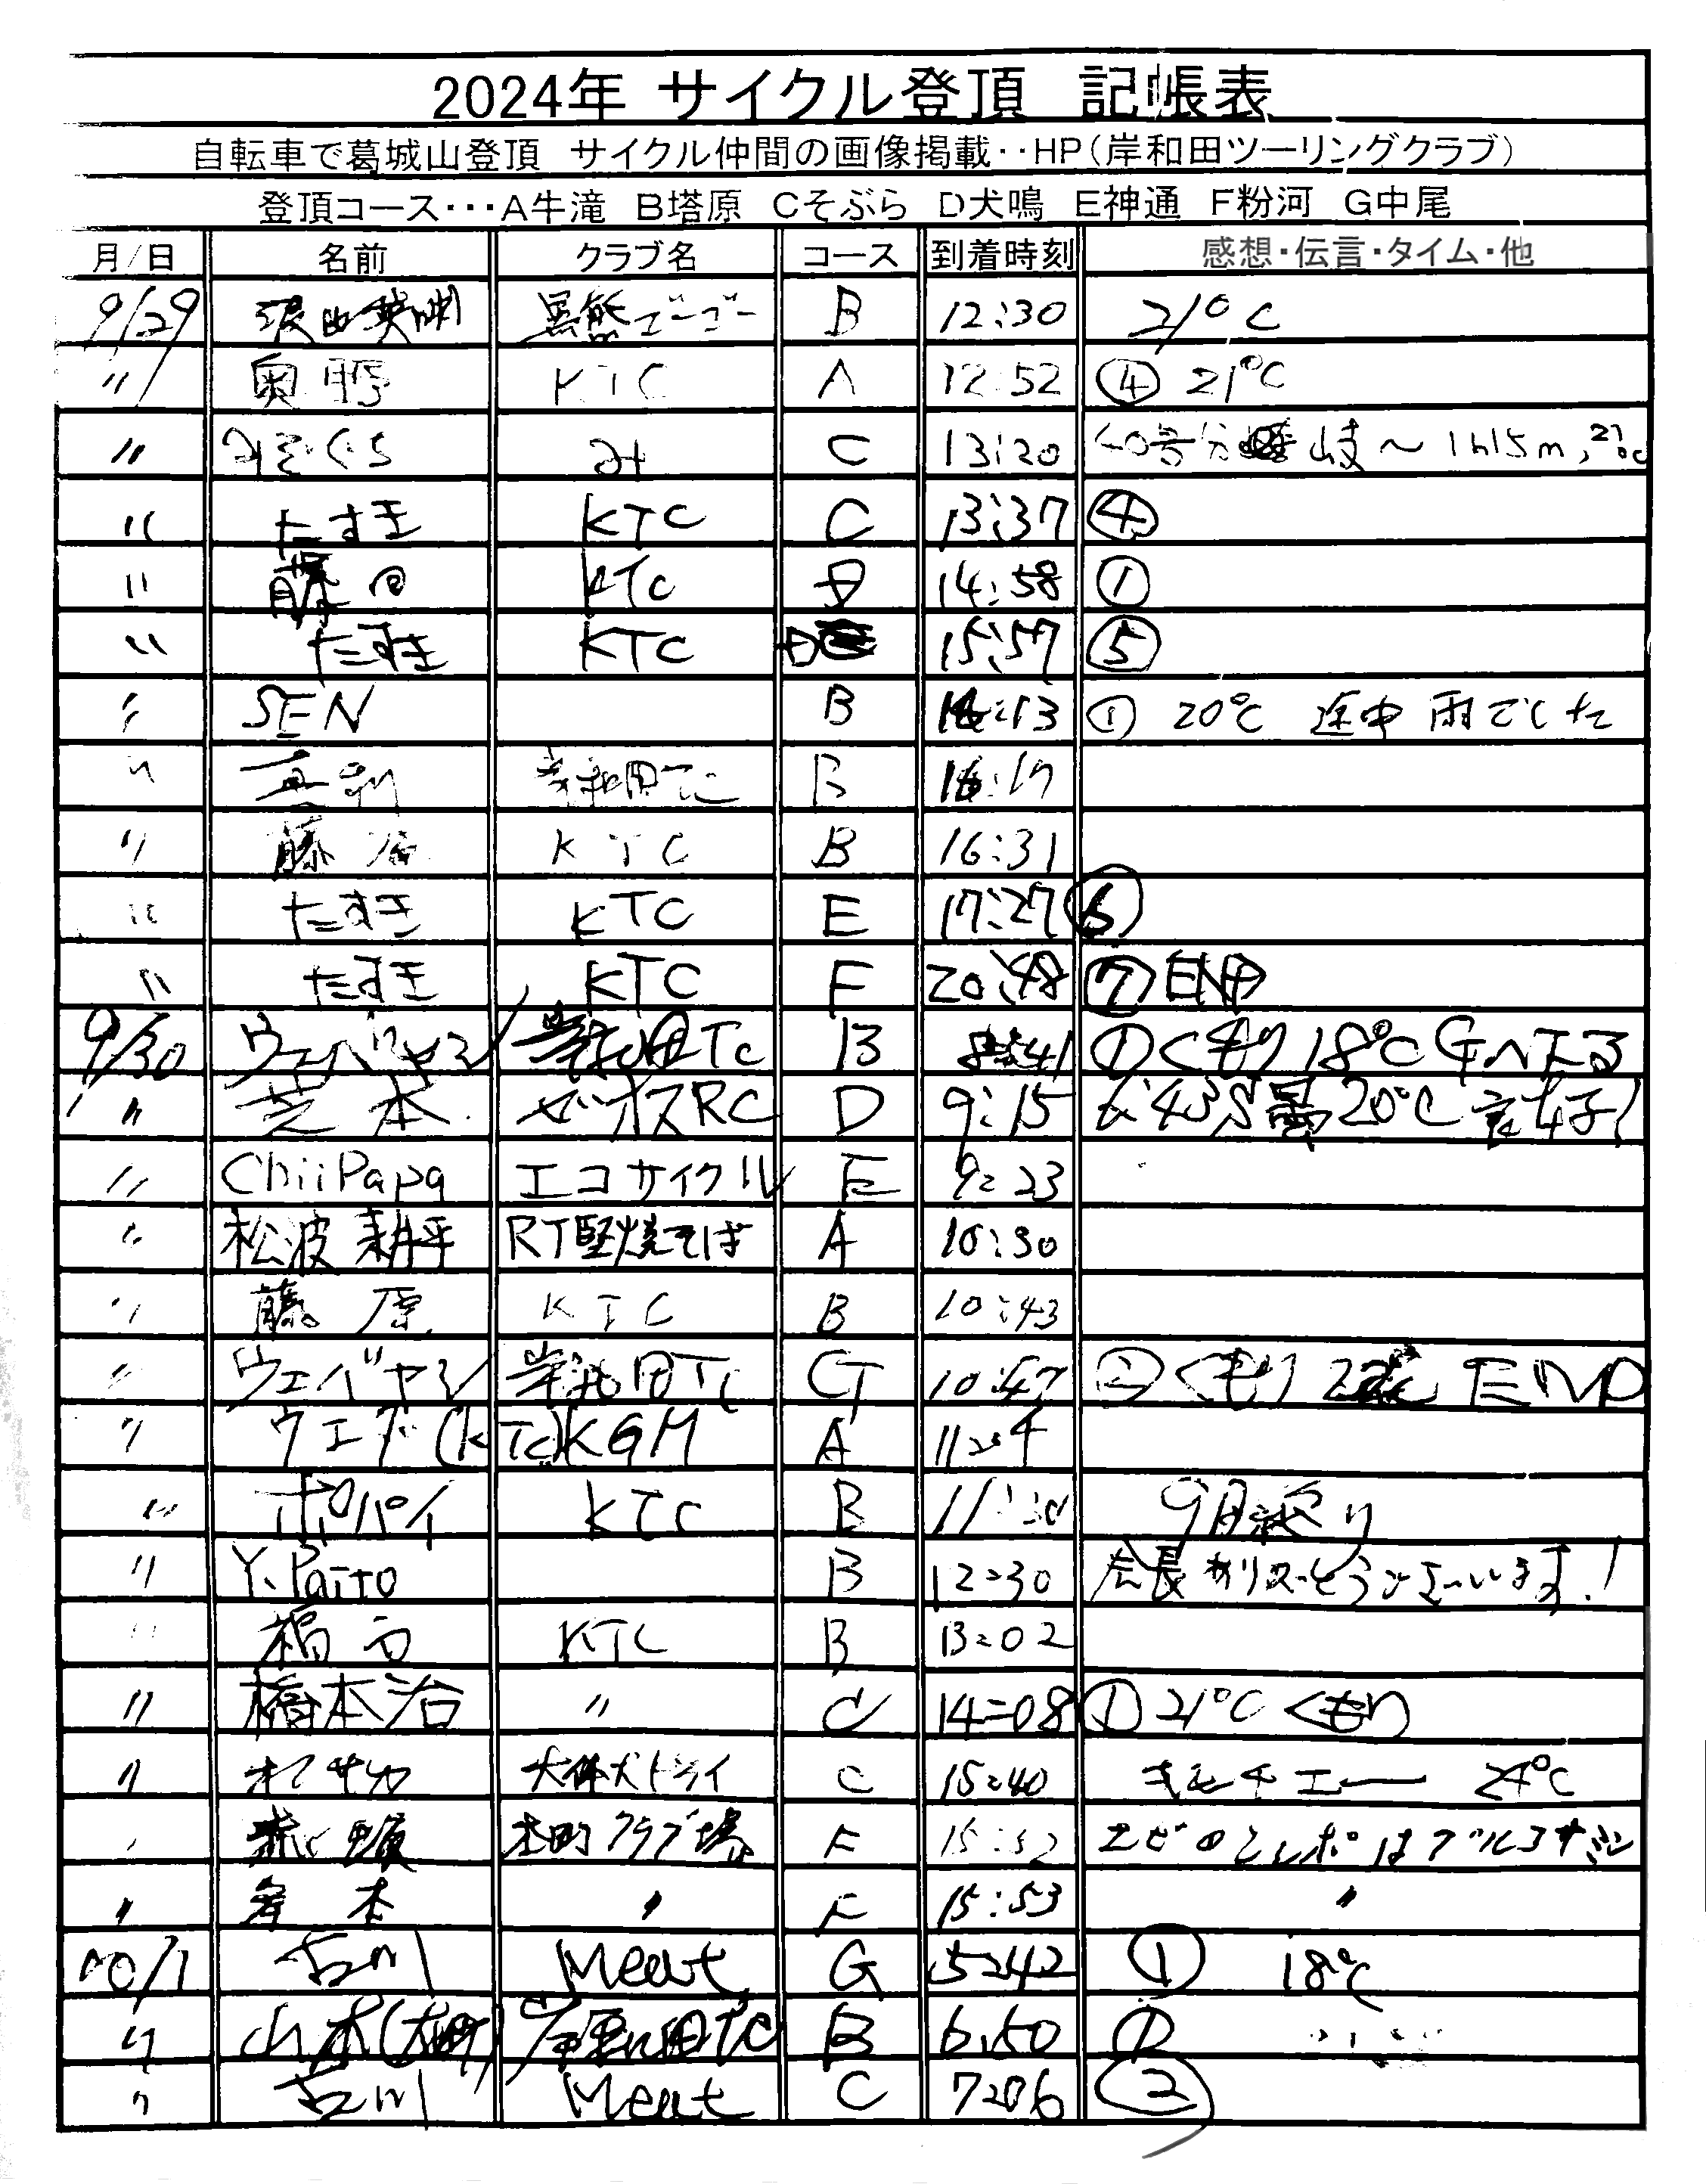 2024年 サイクル登頂 記帳表
自転車で葛城山登頂 サイクル仲間の画像掲載‥HP(岸和田ツーリングクラブ)
登頂コース･･･A牛滝 B塔原 Cそぶら D犬鳴 E神通 F粉河 G中尾
月/日 名前 クラブ名 コース 到着時刻 感想・伝言・タイム・他
9/29 黒熊ゴーゴー B 12:30 21°C
〃 奥野 KTC A 12:52 ④ 21°C
〃 みぞぐち み C 13:20 岐～1h15m, 21°C
〃 たすき KTC C 13:37 ④
〃 藤 KTC 14:58 ①
〃 たすき KTC D 15:57 ⑤
〃 SEN B 16:13 ① 20°C 途中雨でした
〃 岸和田TC B 16:17
〃 藤原 KTC B 16:31
〃 たすき KTC E 17:27 ⑥
〃 たすき KTC F 20:48 ⑦ END
9/30 ウエバヤシ 岸和田TC B 8:41 ①くもり 18°C Gへ下る
〃 芝本 ゼオスRC D 9:15 20°C
〃 ChiiPapa エコサイクル E 9:23
〃 松波耕平 RT堅焼そば A 10:30
〃 藤原 KTC B 10:43
〃 ウエバヤシ 岸和田TC G 10:47 ②くもり END
〃 ウエダ(KTC) KGM A
〃 ポパイ KTC B 9月終り
〃 Y.Paito B 12:30 会長ありがとうございます!
〃 KTC B 13:02
〃 橋本治 〃 C 14:08 ① 21°C くもり
〃 C 15:40 キモチエー 24°C
F 15:52
〃 本 〃 F 15:53 〃
10/1 古川 Meat G 5:42 ① 18°C
〃 山本 岸和田TC B 6:50 ①
〃 古川 Meat C 7:06 ②